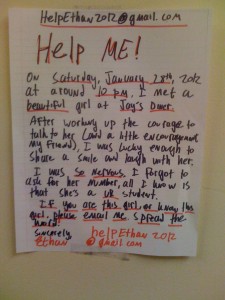 HelpEthan2012@gmail.com
Help ME!
On Saturday, January 28th, 2012
at around 10 pm. I met a
beautiful girl at Jay's Diner.
After working up the courage to
talk to her (and a little encouragement
my friend), I was lucky enough to
share a smile and laugh with her.
I was so nervous. I forgot to
ask for her number, all I know is
that she's a UR student.
If you are this girl, or know this
girl, please email me. Spread the
word.
Sincerely,
Ethan
helpEthan2012
@gmail.com